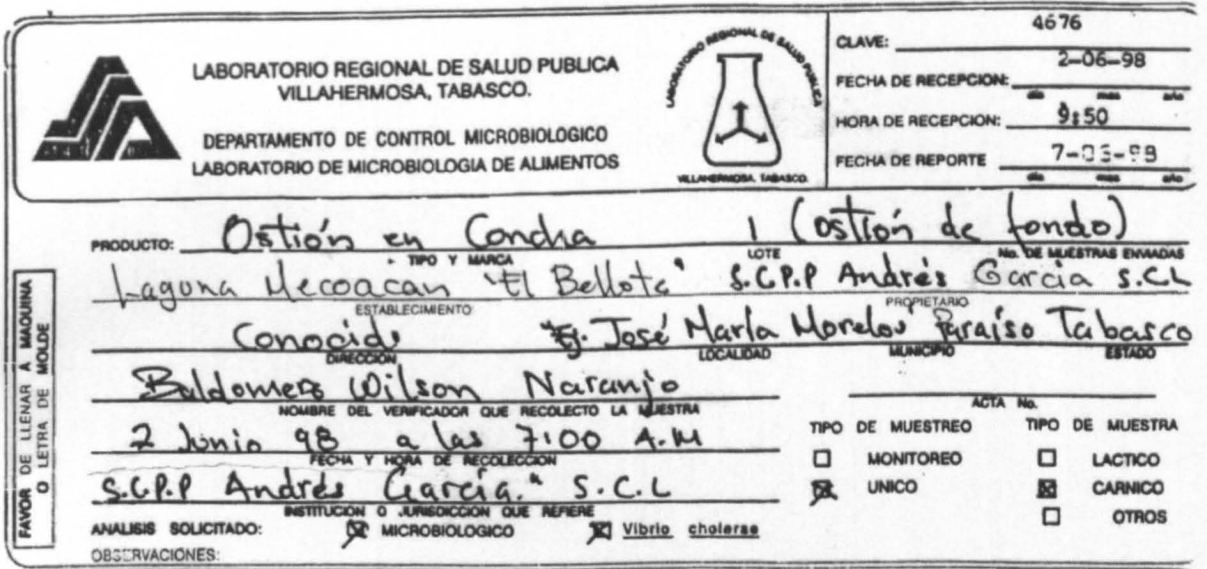 LABORATORIO REGIONAL DE SALUD PUBLICA
VILLAHERMOSA, TABASCO.
DEPARTAMENTO DE CONTROL MICROBIOLOGICO
LABORATORIO DE MICROBIOLOGIA DE ALIMENTOS
LABORATORIO REGIONAL DE SALUD PUBLICA
VILLAHERMOSA, TABASCO.
CLAVE: 4676
FECHA DE RECEPCION: 2-06-98
dia mes año
HORA DE RECEPCION: 9:50
FECHA DE REPORTE 7-
dia mes año
PRODUCTO: Ostión en Concha 1 (ostión de fondo)
TIPO Y MARCA LOTE No. DE MUESTRAS ENVIADAS
Laguna Mecoacan "El Bellote" S.C.P.P Andrés García S.C.L
ESTABLECIMIENTO PROPIETARIO
Conocido Ej. José María Morelos Paraíso Tabasco
DIRECCION LOCALIDAD MUNICIPIO ESTADO
Baldomero Wilson Naranjo
NOMBRE DEL VERIFICADOR QUE RECOLECTO LA MUESTRA
ACTA No.
2 Junio 98 a las 7:00 A.M
FECHA Y HORA DE RECOLECCION
S.C.P.P Andrés García." S.C.L
INSTITUCION O JURISDICCION QUE REFIERE
TIPO DE MUESTREO TIPO DE MUESTRA
MONITOREO LACTICO
UNICO CARNICO
OTROS
ANALISIS SOLICITADO: MICROBIOLOGICO Vibrio cholerae
OBSERVACIONES:
FAVOR DE LLENAR A MAQUINA
O LETRA DE MOLDE